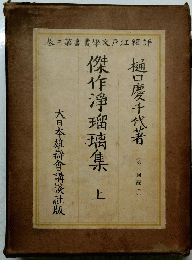 評釋江戸文學叢書第三卷
樋口慶千代著
傑作淨瑠璃集 上
大日本雄辯會講談社版